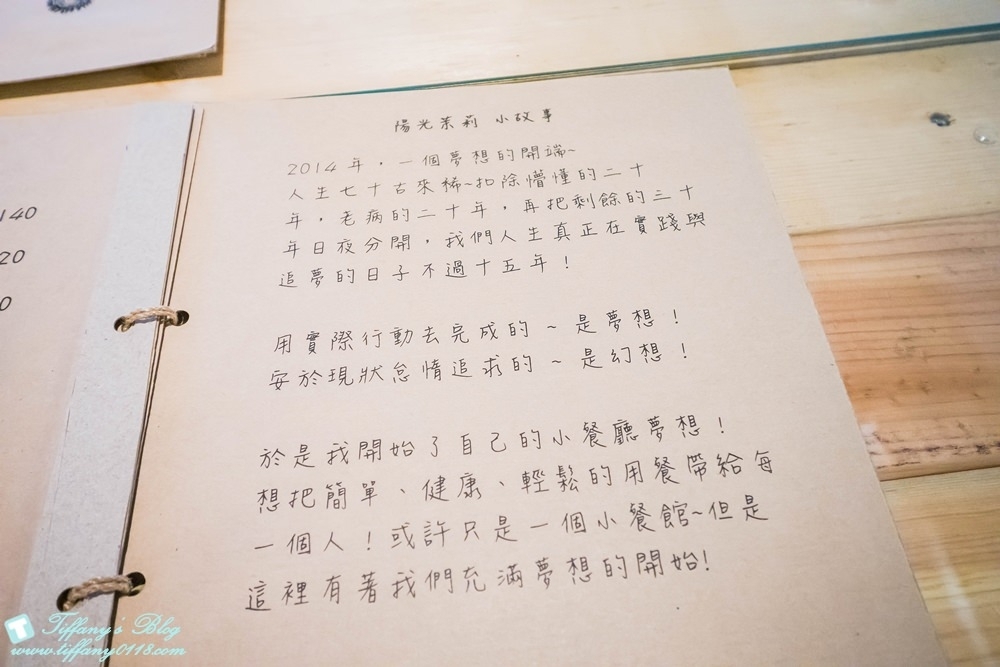 陽光茉莉 小故事
2014年，一個夢想的開端~
人生七十古來稀~扣除懵懂的二十
年，老病的二十年，再把剩餘的三十
年日夜分開，我們人生真正在實踐與
追夢的日子不過十五年！
用實際行動去完成的 ~ 是夢想！
安於現狀怠惰追求的 ~ 是幻想！
於是我開始了自己的小餐廳夢想！
想把簡單、健康、輕鬆的用餐帶給每
一個人！或許只是一個小餐館~但是
這裡有著我們充滿夢想的開始!
140
20
0
Tiffany's Blog
www.tiffany0118.com